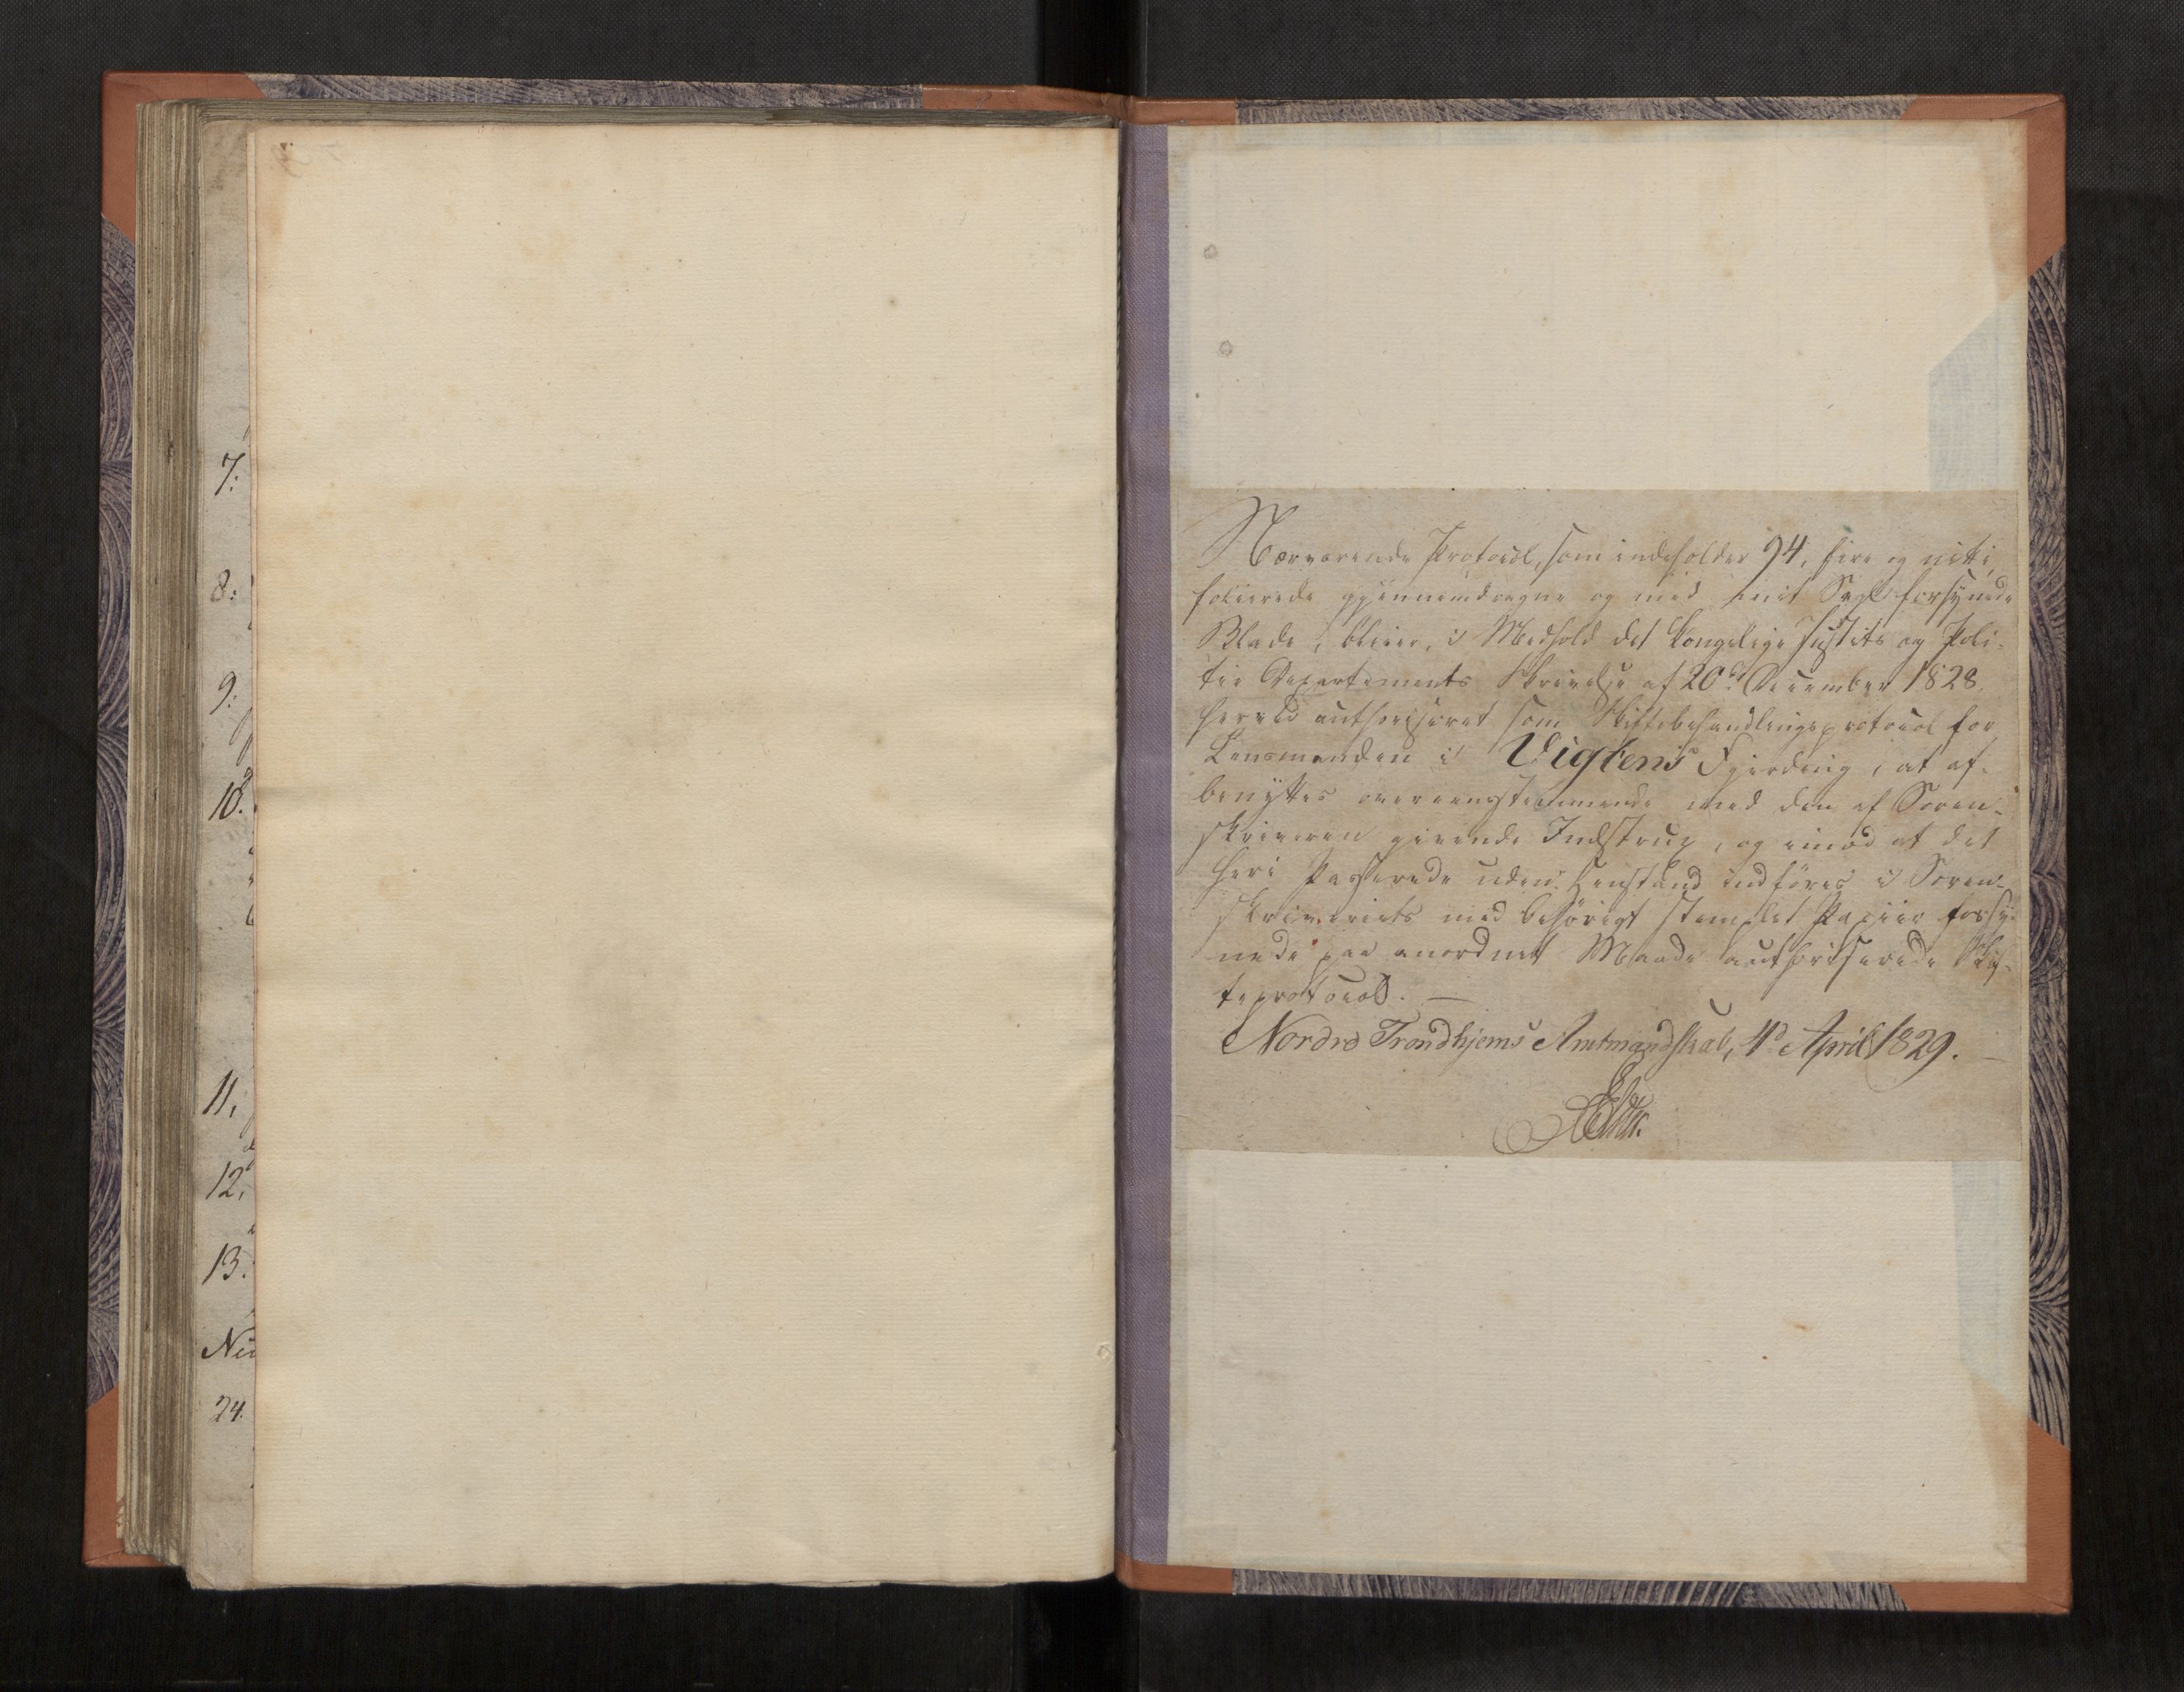 7:
8:
9:
10.
11,
12,
13.
24.
Nærværende Protocol, som indeholder 94, fire og nitti,
folierede gjennemdragne og med mit Segl forsynede
Blade, bliver, i Medhold det kongelige Justits og Poli-
tie Departements Skrivelse af 20d December 1828,
herved authoriseret som Skiftebehandlingsprotocol for
Lensmanden i Vigtens Fjerding, at af-
benyttes overeensstemmende med den af Soren-
skriveren givende Instrux, og imod at det
heri Passerede uden Henstand indføres i Soren-
skriveriets med behørigt stemplet Papiir forsy-
nede paa anordnet Maade authoriserede Skif-
teprotocol. —
Nordre Trondhjems Amtmandskab, 11d April 1829. —